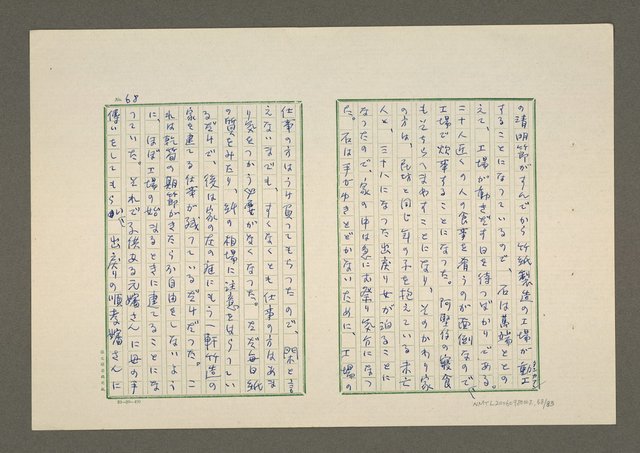 の清明節がすんでから竹紙製造の工場が動工
することになっているので、石は萬端ととの
えて、工場が動きだす日を待つばかりである。
二十人近くの人の食事を賄うのが面倒なので
工場で炊事することになり、阿堅伯の寝食
もいちらへまわすことになり、そのかわり家
の方は、阮坊と同じ年の子を抱えている未亡
人と、三十八になった出戻り女が泊ることに
なったので、家の中は急にお祭り気分になっ
た。石は手がゆきとどかないために、工場の
No. 68
仕事の方はうけ負ってもらったので、閑と言
えないまでも、すくなくとも仕事の方はあま
り気をつかう必要がなくなった。ただ毎日紙
の質をみたり、紙の相場に注意をはらってい
るだけで、後は家の左の庭にもう一軒竹造の
家を建てる仕事が残っているだけだった。こ
れは乾質の期節がきたらか自由をしないよう
に、ほぼ工場の始まるときに建てることにな
っていた。それで子供ある元嬸さんに母の手
傳いをしてもらい、出戻りの順孝嬸さんに
NMTL20060980102, 68/83